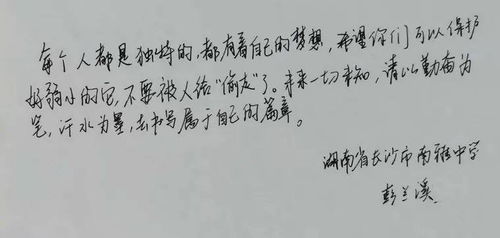 每个人都是独特的,都有着自己的梦想,希望你们可以保护
好弱小的它,不要被人给“偷走”了。未来一切未知,请以勤奋为
笔,汗水为墨,去书写属于自己的篇章。
湖南省长沙市南雅中学
彭兰溪